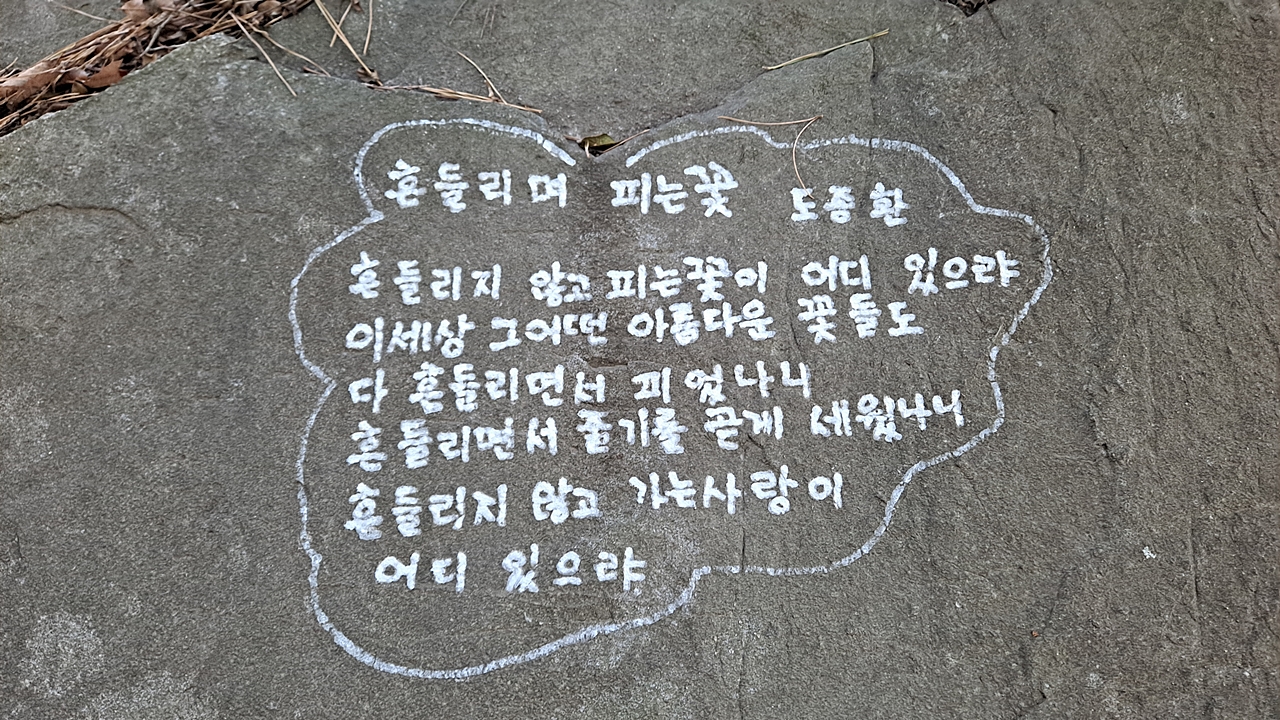 흔들리며 피는꽃 도종환
흔들리지 않고 피는꽃이 어디 있으랴
이세상 그어떤 아름다운 꽃들도
다 흔들리면서 피었나니
흔들리면서 줄기를 곧게 세웠나니
흔들리지 않고 가는사랑이
어디 있으랴